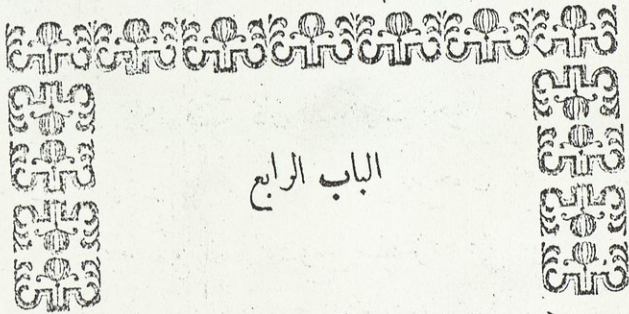 الباب الرابع